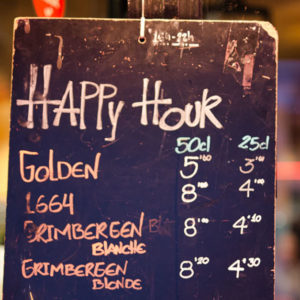 16h-22h
HAPPY HOUR
50cl 25cl
GOLDEN 5'00 3'00
1664 8'00 4'00
GRIMBERGEN
BLANCHE 8'00 4'10
GRIMBERGEN
BLONDE 8'20 4'30